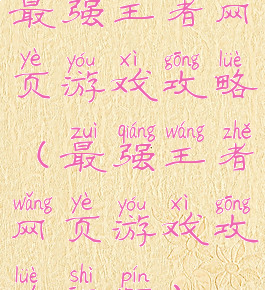 最强王者网
yè yóu xì gōng lüè
页游戏攻略
zuì qiáng wáng zhě
（最强王者
wǎng yè yóu xì gōng
网页游戏攻
lüè shì pín